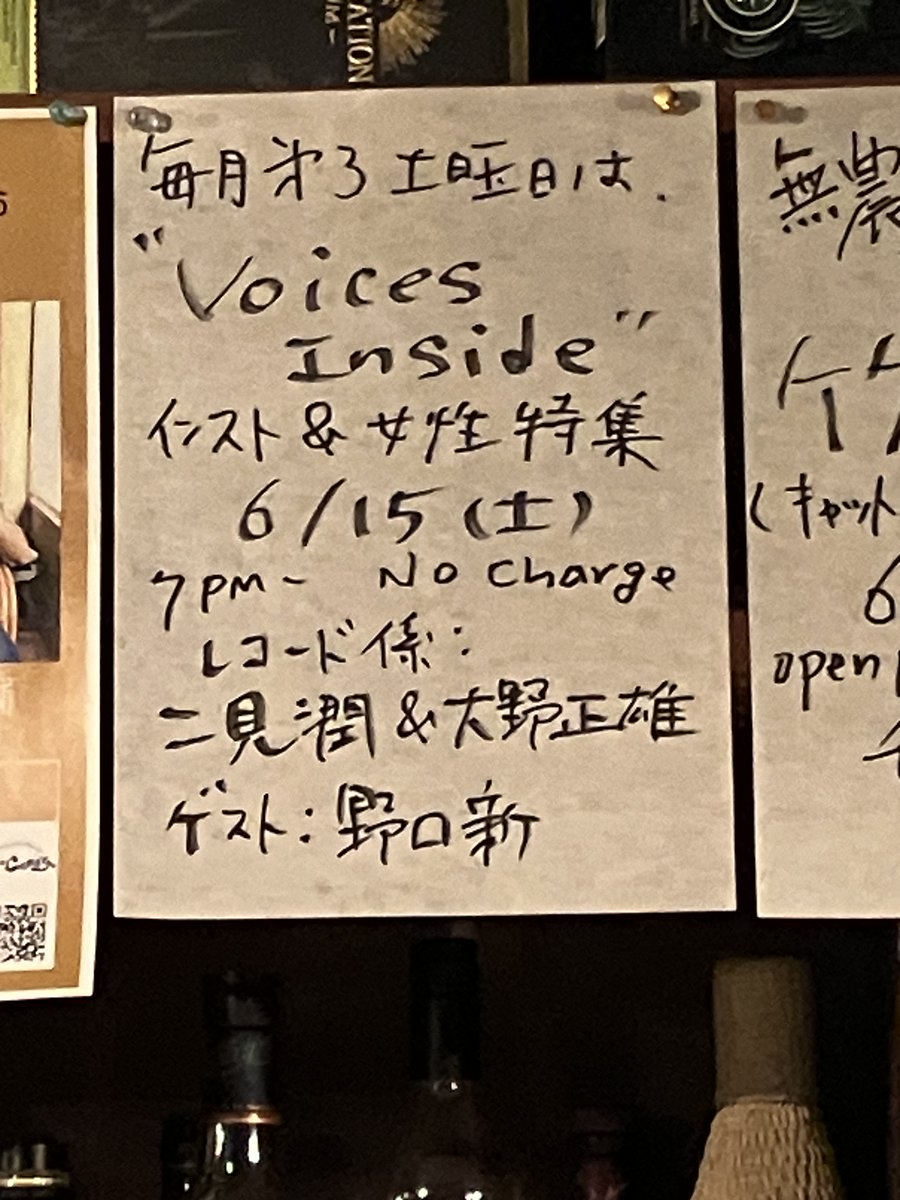 ATION
毎月第3土曜日は、
"Voices
Inside"
インスト & 女性特集
6/15 (土)
7pm~ No Charge
レコード係:
二見潤 & 大野正雄
ゲスト: 野口新
無農
(キャット
6
open